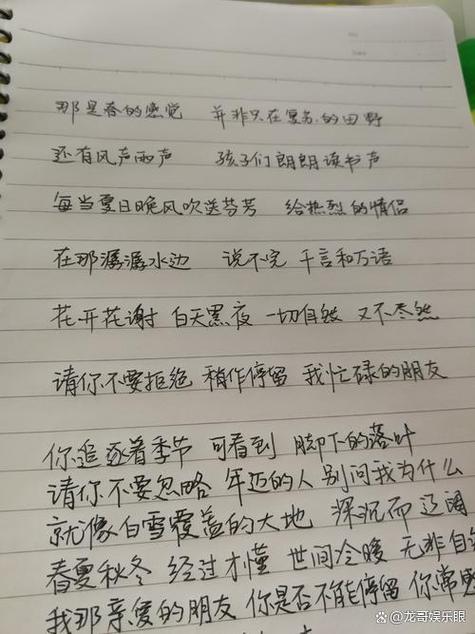 那是春的感觉 并非只在复苏的田野
还有风声雨声 孩子们朗朗读书声
每当夏日晚风吹送芬芳 给热烈的情侣
在那潺潺水边 说不完 千言和万语
花开花谢 白天黑夜 一切自然 又不尽然
请你不要拒绝 稍作停留 我忙碌的朋友
你追逐着季节 可看到 脚下的落叶
请你不要忽略 年迈的人 别问我为什么
就像白雪覆盖的大地 深沉而辽阔
春夏秋冬 经过才懂 世间冷暖 无非自
我那亲爱的朋友 你是否不能停留 你常
@龙哥娱乐眼